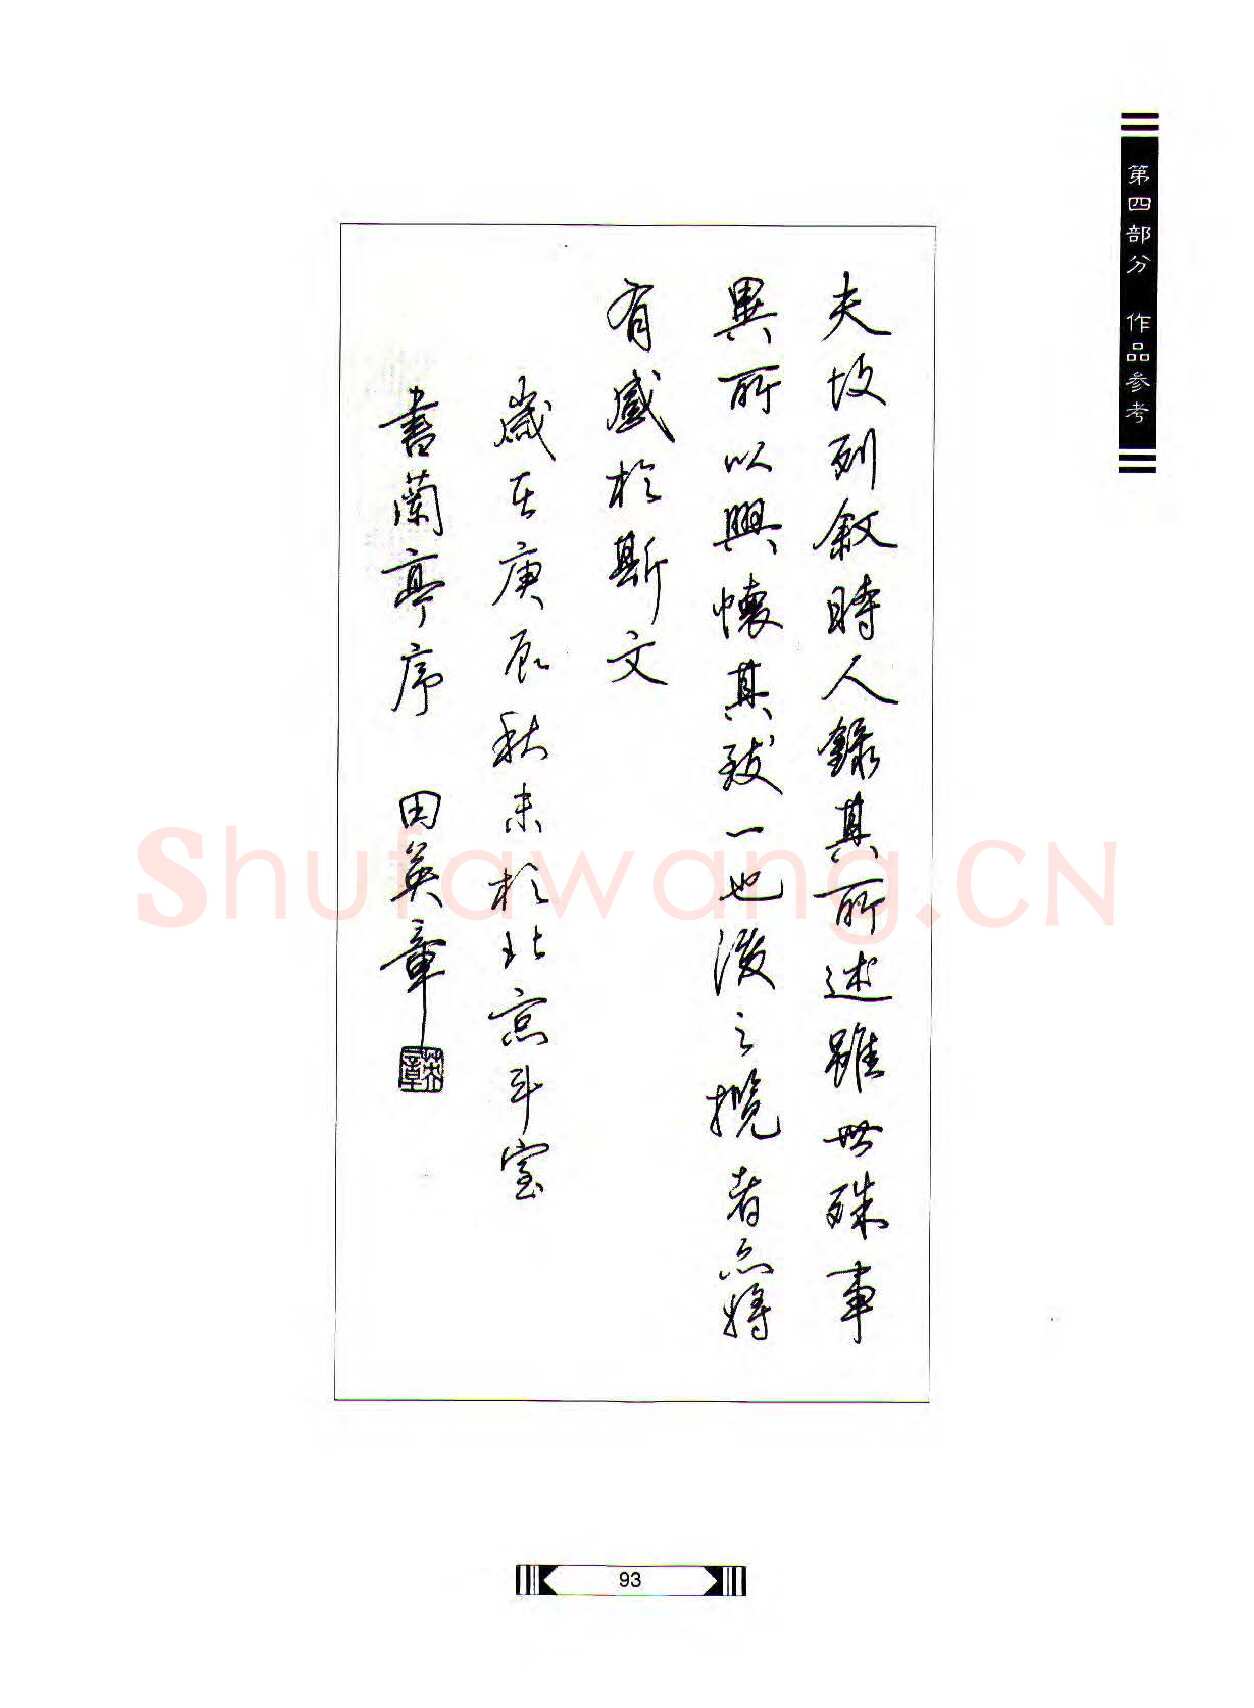 第四部分 作品参考
夫故列敘時人錄其所述雖世殊事
異所以興懷其致一也後之攬者亦將
有感於斯文
歲在庚辰秋末於北京斗室
書蘭亭序 田英章
英章
Shufawang.CN
93